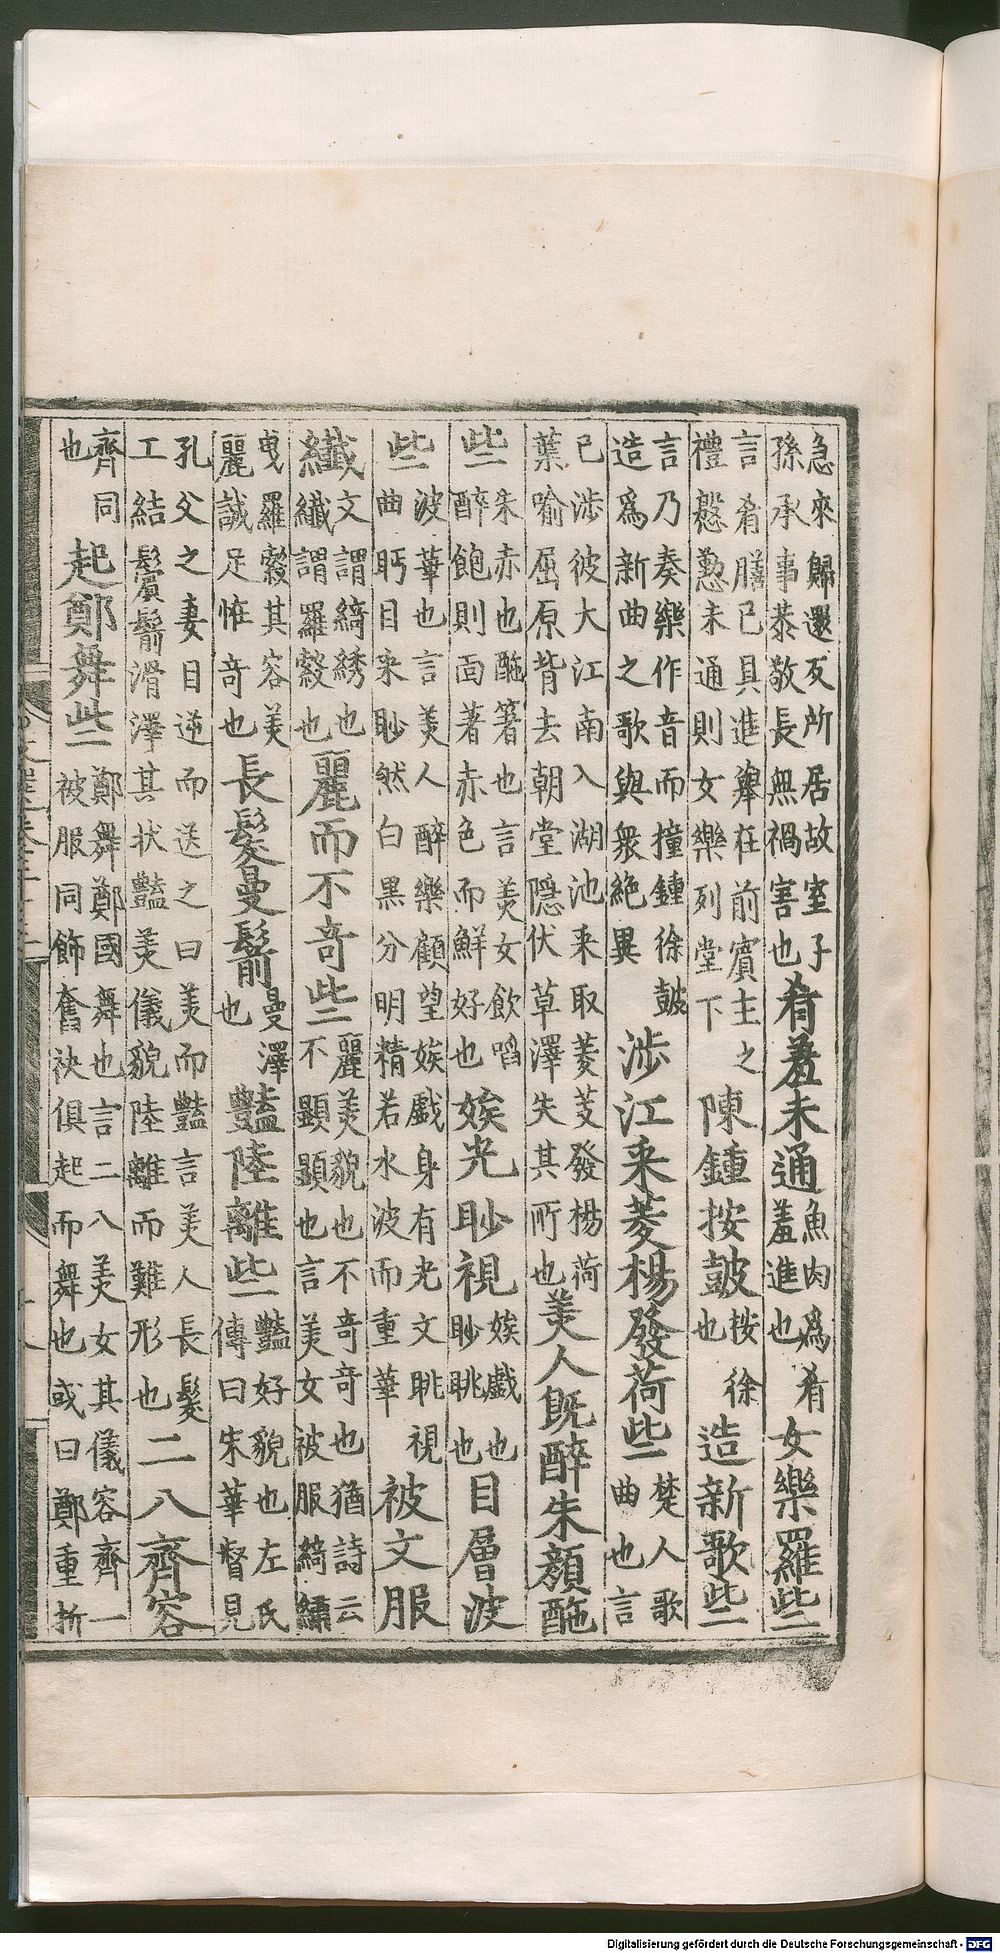 急來歸還反所居故室子孫承事恭敬長無禍害也肴羞未通魚肉為肴羞進也女樂羅些
言肴膳已具進舉在前賓主之禮慇懃未通則女樂列堂下陳鍾按鼓按徐也造新歌些
言乃奏樂作音而撞鍾徐鼓造為新曲之歌與衆絶異涉江采菱楊發荷些楚人歌曲也言
已涉彼大江南入湖池来取菱芰發楊荷葉喻屈原背去朝堂隱伏草澤失其所也美人既醉朱顏酏
些朱赤也酏著也言美女飲啗醉飽則面著赤色而鮮好也娭光眇視娭戲也眇眺也目層波
些波華也言美人醉樂顧望娭戲身有光文眺視曲眄目来眇然白黒分明精若水波而重華被文服
纖文謂綺綉也纖謂羅縠也麗而不奇些麗美貌也不奇奇也猶詩云不顯顯也言美女被服綺繡
曳羅縠其容美麗誠足惟奇也長髮曼鬋曼澤也豔陸離些豔好貌也左氏傳曰宋華督見
孔父之妻目逆而送之曰美而豔言美人長髮工結鬢鬋滑澤其状豔美儀貌陸離而難形也二八齊容
齊同也起鄭舞些鄭舞鄭國舞也言二八美女其儀容齊一被服同飾奮袂俱起而舞也或曰鄭重折
Digitalisierung gefördert durch die Deutsche Forschungsgemeinschaft - DFG